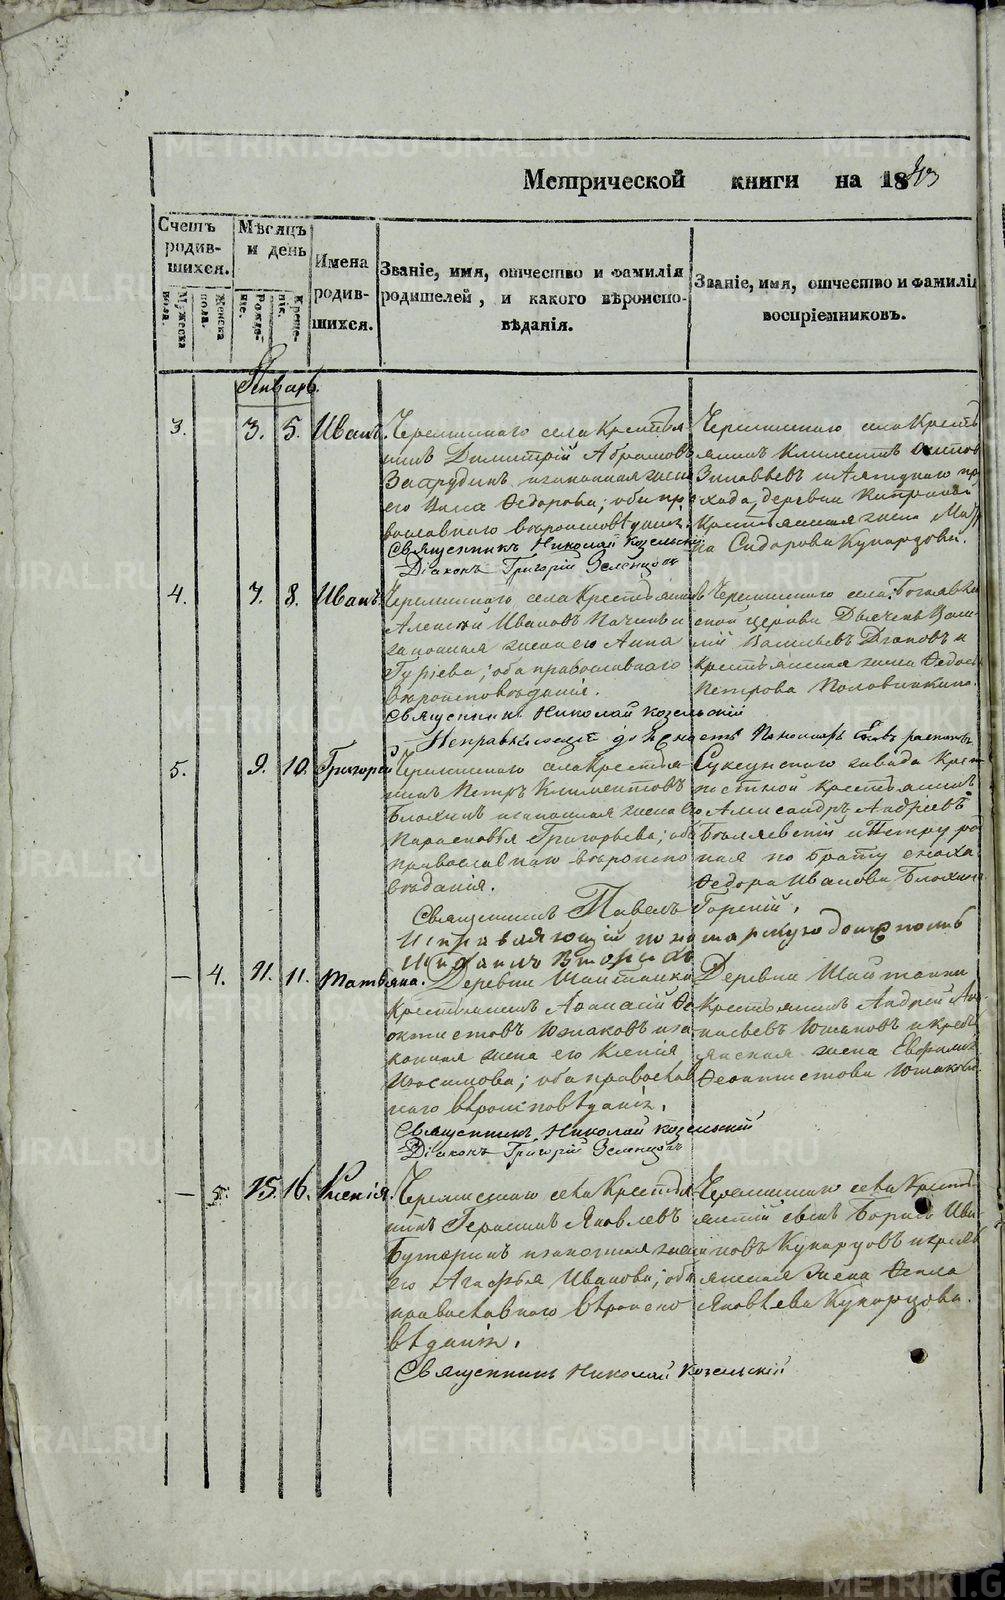 Метрической книги на 1843
Счетъ родив-шихся.
Мужеска пола.
Женска пола.
Мѣсяцъ и день
Рожде-ніе.
Креще-нія.
Имена родив-шихся.
Званіе, имя, отчество и фамилія
родителей, и какого вѣроиспо-
вѣданія.
Званіе, имя, отчество и фамилія
воспріемниковъ.
Январь.
3. 3. 5. Иванъ.
Черемисского села Крестья
нинъ Димитрій Абрамовъ
и законная жена
его Анна Ѳедорова; оба пра
вославнаго вѣроисповѣданія.
Священникъ Николай Козельскій
Діаконъ Григорій Зеленцовъ
Черемисского села Кресть
янинъ Климентъ
Зиновьевъ и Аятскаго при
хода, деревни
Крестьянская жена
Сидорова Кукарцова.
4. 7. 8. Иванъ.
Черемисского села Крестьянинъ
Алексѣй Ивановъ и
законная жена его Анна
Гурьева; оба православнаго
вѣроисповѣданія.
Священникъ Николай Козельскій
Исправляющій должность Пономаря
Черемисского села Богоявлен
ской церкви Дьячекъ Васи
лій Васильевъ и
Крестьянская жена Ѳедось
Петрова Половинкина.
5. 9. 10. Григорій
Черемисского села Крестья
нинъ Петръ Климентовъ
Блохинъ и законная жена его
Парасковья Григорьева; оба
православнаго вѣроиспо
вѣданія.
Священникъ Павелъ Горскій.
Исправляющій пономарскую должность
Суксунскаго завода Крѣ
постной крестьянинъ
Александръ Андреевъ
Боголявскій и
ная по брату сноха
Ѳедора Иванова Блохина
— 4. 11. 11. Татьяна.
Деревни Шайтанки
Крестьянинъ Аѳанасій Ѳе
октистовъ Южаковъ и за
конная жена его Ксенія
Изосимова; оба православ
наго вѣроисповѣданія.
Священникъ Николай Козельскій
Діаконъ Григорій Зеленцовъ
Деревни Шайтанки
Крестьянинъ Андрей Аѳа
насьевъ Южаковъ и кресть
янская жена
Ѳеоктистова Южакова.
— 5. 15. 16. Ксенія.
Черемисского села Крестья
нинъ Герасимъ Яковлевъ
Бутаринъ и законная жена
его Агафья Иванова; оба
православнаго вѣроиспо
вѣданія.
Священникъ Николай Козельскій
Черемисского села Кресть
янскій сынъ Борисъ Ива
новъ Кукарцовъ и кресть
янская жена Ѳекла
Яковлева Кукарцова.
METRIKI.GASO-URAL.RU